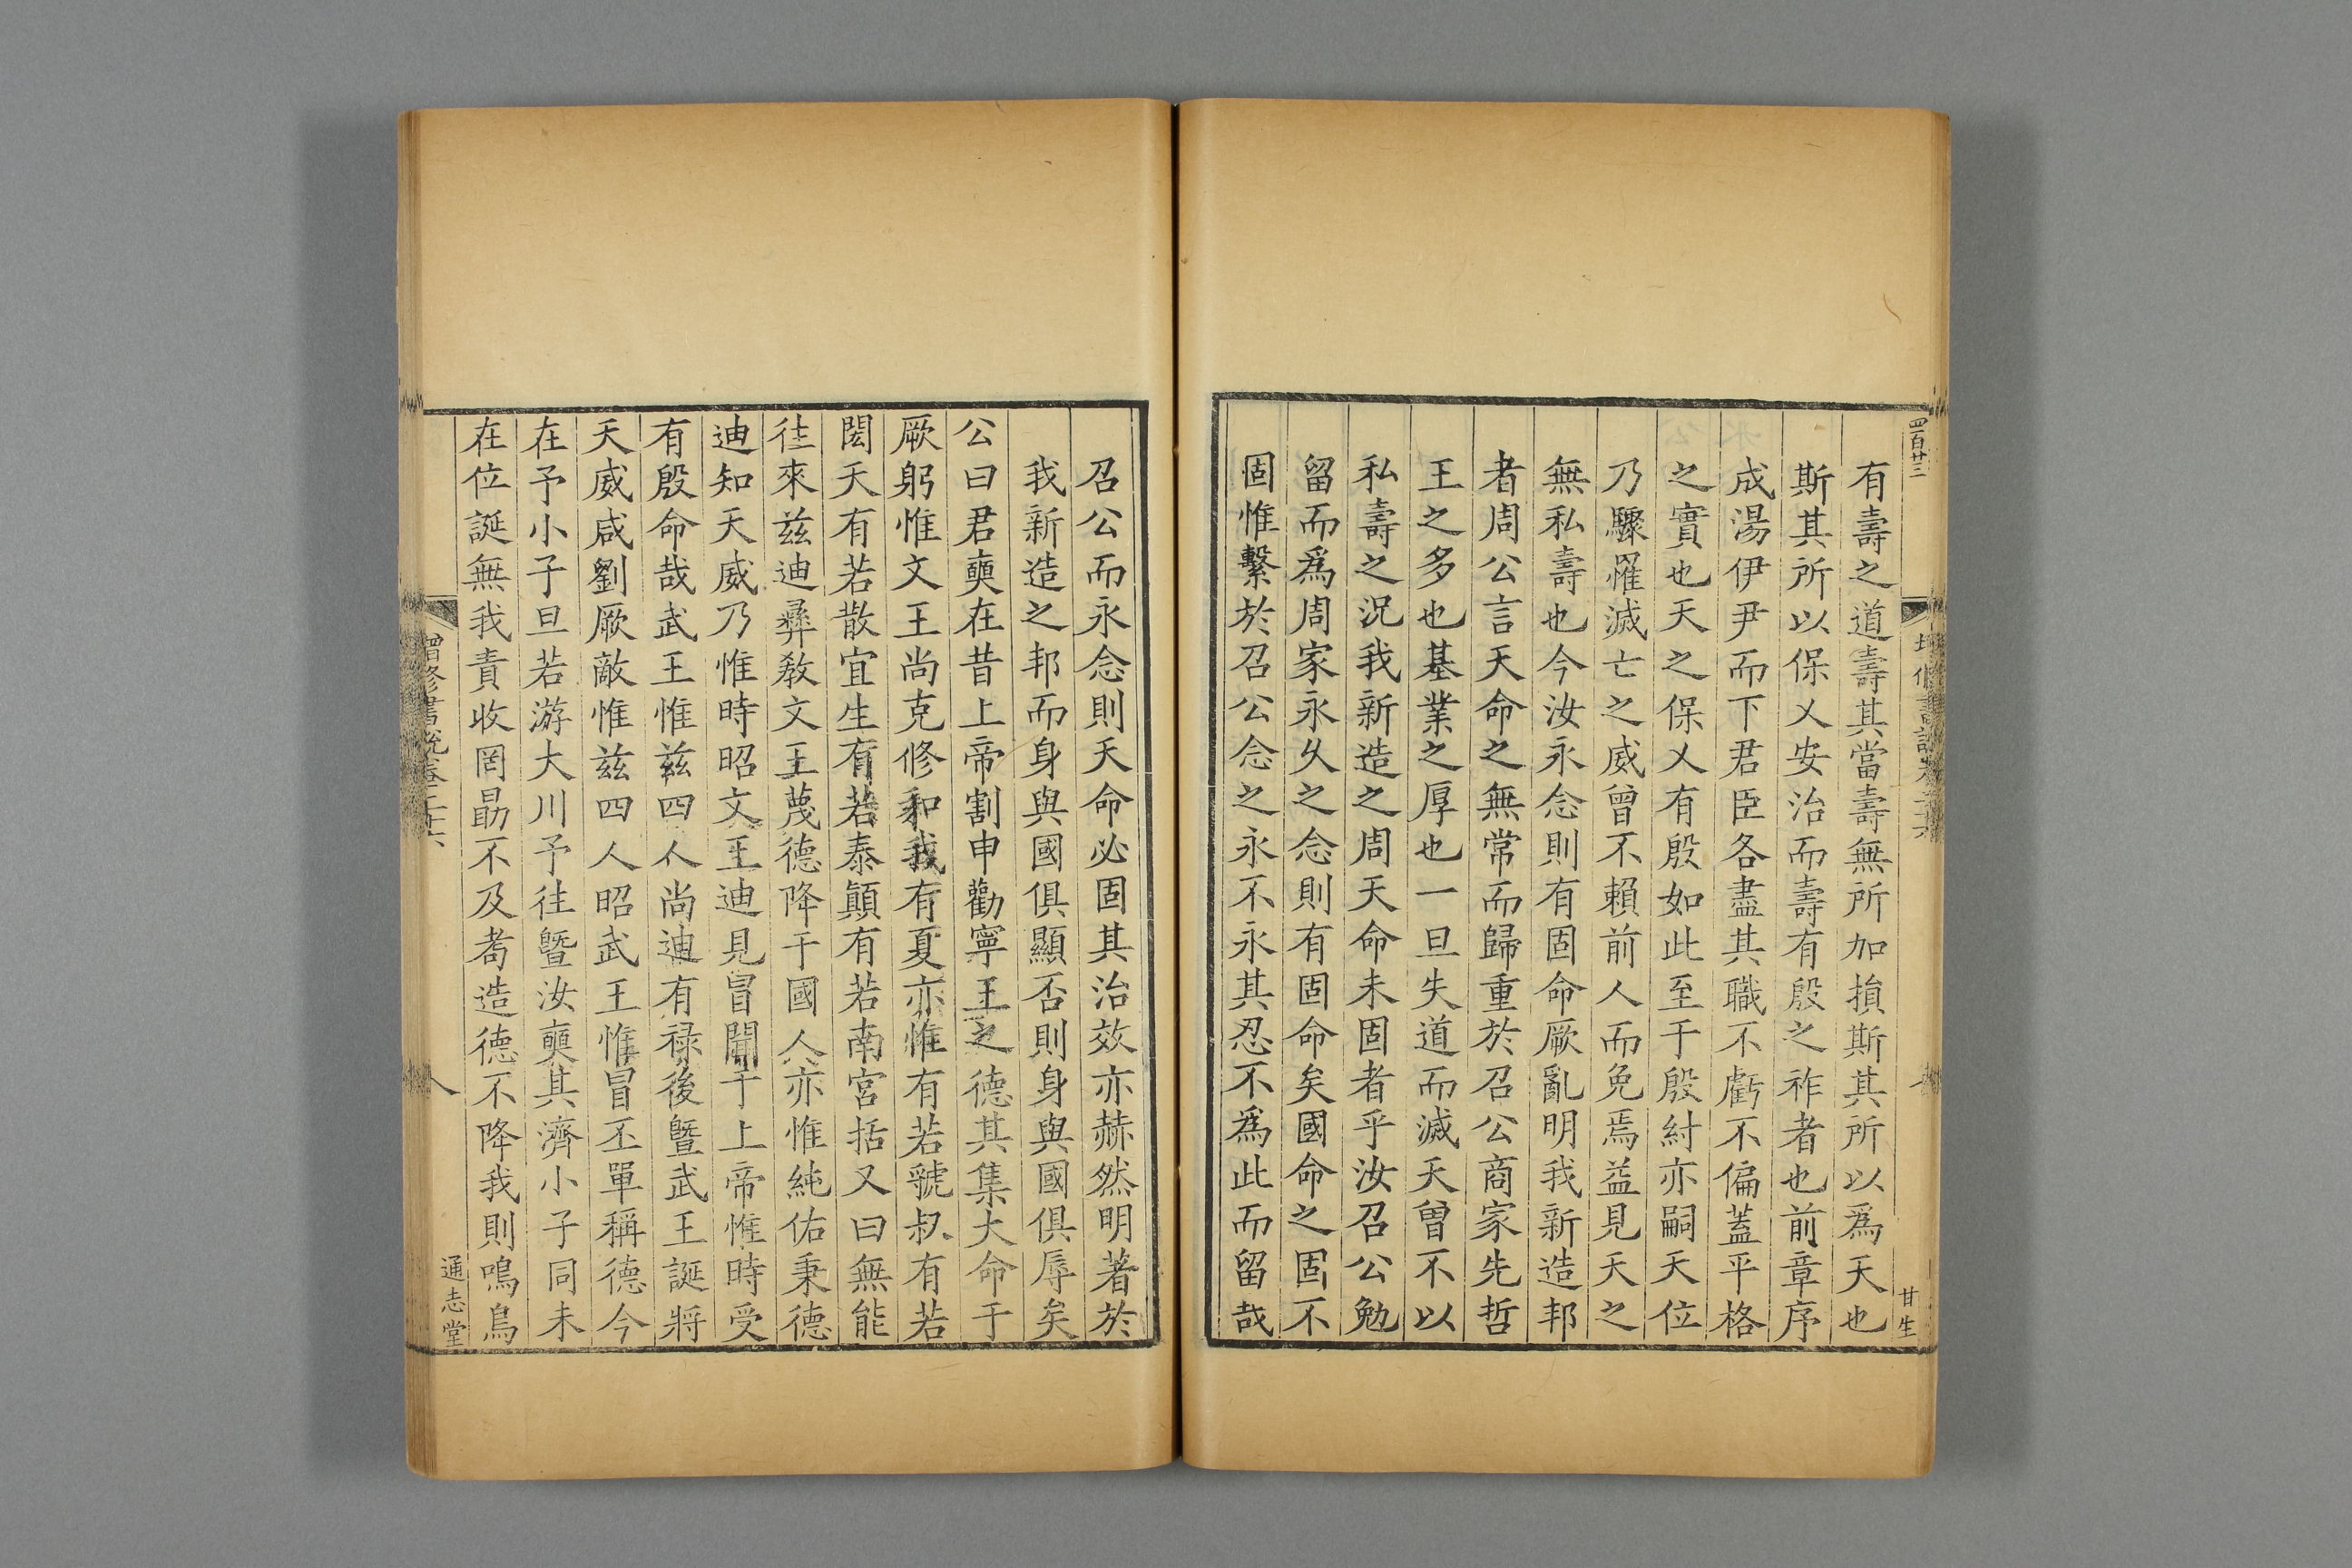 四百廿三
甘生
有壽之道壽其當壽無所加損斯其所以爲天也
斯其所以保乂安治而壽有殷之祚者也前章序
成湯伊尹而下君臣各盡其職不虧不偏蓋平格
之實也天之保乂有殷如此至于殷紂亦嗣天位
乃驟罹滅亡之威曾不賴前人而免焉益見天之
無私壽也今汝永念則有固命厥亂明我新造邦
者周公言天命之無常而歸重於召公商家先哲
王之多也基業之厚也一旦失道而滅天曾不以
私壽之況我新造之周天命未固者乎汝召公勉
留而爲周家永久之念則有固命矣國命之固不
固惟繫於召公念之永不永其忍不爲此而留哉
召公而永念則天命必固其治效亦赫然明著於
我新造之邦而身與國俱顯否則身與國俱辱矣
公曰君奭在昔上帝割申勸寧王之德其集大命于
厥躬惟文王尚克修和我有夏亦惟有若虢叔有若
閎夭有若散宜生有若泰顛有若南宮括又曰無能
往來茲迪彝敎文王蔑德降于國人亦惟純佑秉德
迪知天威乃惟時昭文王迪見冒聞于上帝惟時受
有殷命哉武王惟茲四人尚迪有禄後曁武王誕將
天威咸劉厥敵惟茲四人昭武王惟冒丕單稱德今
在予小子旦若游大川予往曁汝奭其濟小子同未
在位誕無我責收罔勗不及耇造德不降我則鳴鳥
增修書說卷二十六
八
通志堂